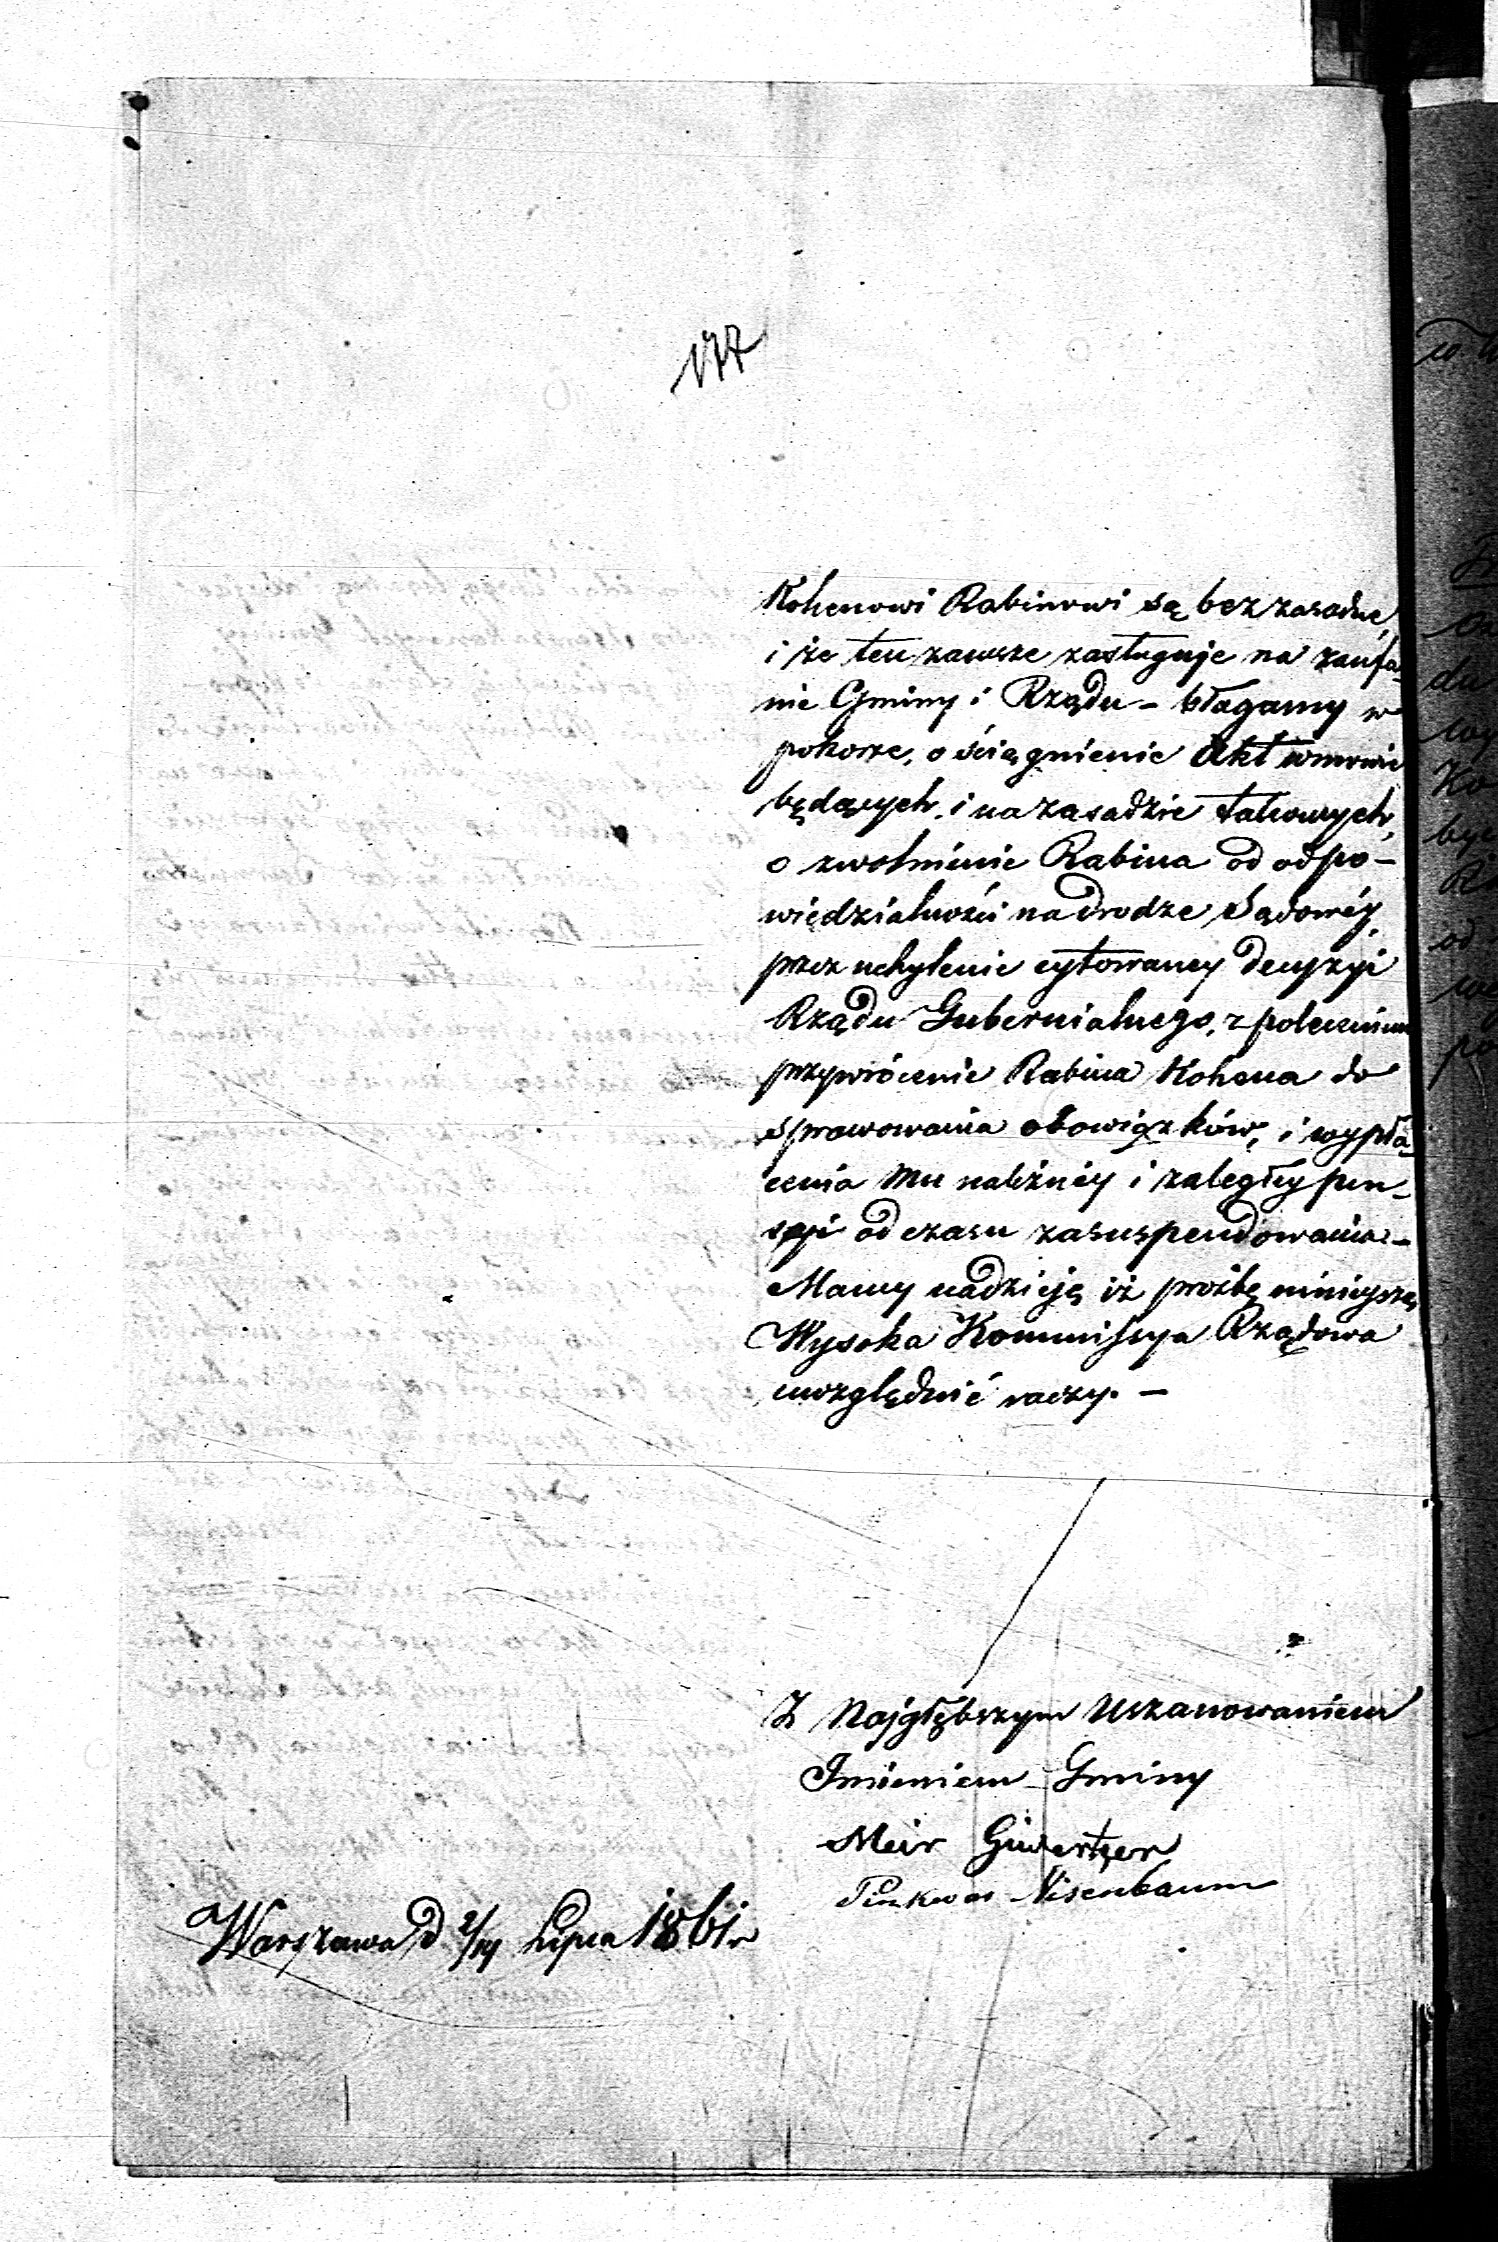 177
Kohenowi Rabinowi są bezzasadne,
i że ten zawsze zasługuje na zaufa-
nie Gminy i Rządu – błagamy w
pokorze, o ściągnienie Akt wmowie
będących, i na zasadzie takowych,
o zwolnienie Rabina od odpo-
wiedzialności na drodze Sądowéy,
przez uchylenie cytowaney decyzyi
Rządu Gubernialnego, z poleceniem
przywrócenie Rabina Kohena do
sprawowania obowiązków, i wypła-
cenia mu należnéy i zaległéy pen-
syi od czasu zasuspendowania –
Mamy nadzieję iż prożbę ninieyszą
Wysoka Kommissya Rządowa
uwzględnić raczy. –
Z Najgłębszym Uszanowaniem
Imieniem Gminy
Meir
Nisenbaum
Warszawa d 2/14 Lipca 1861 r